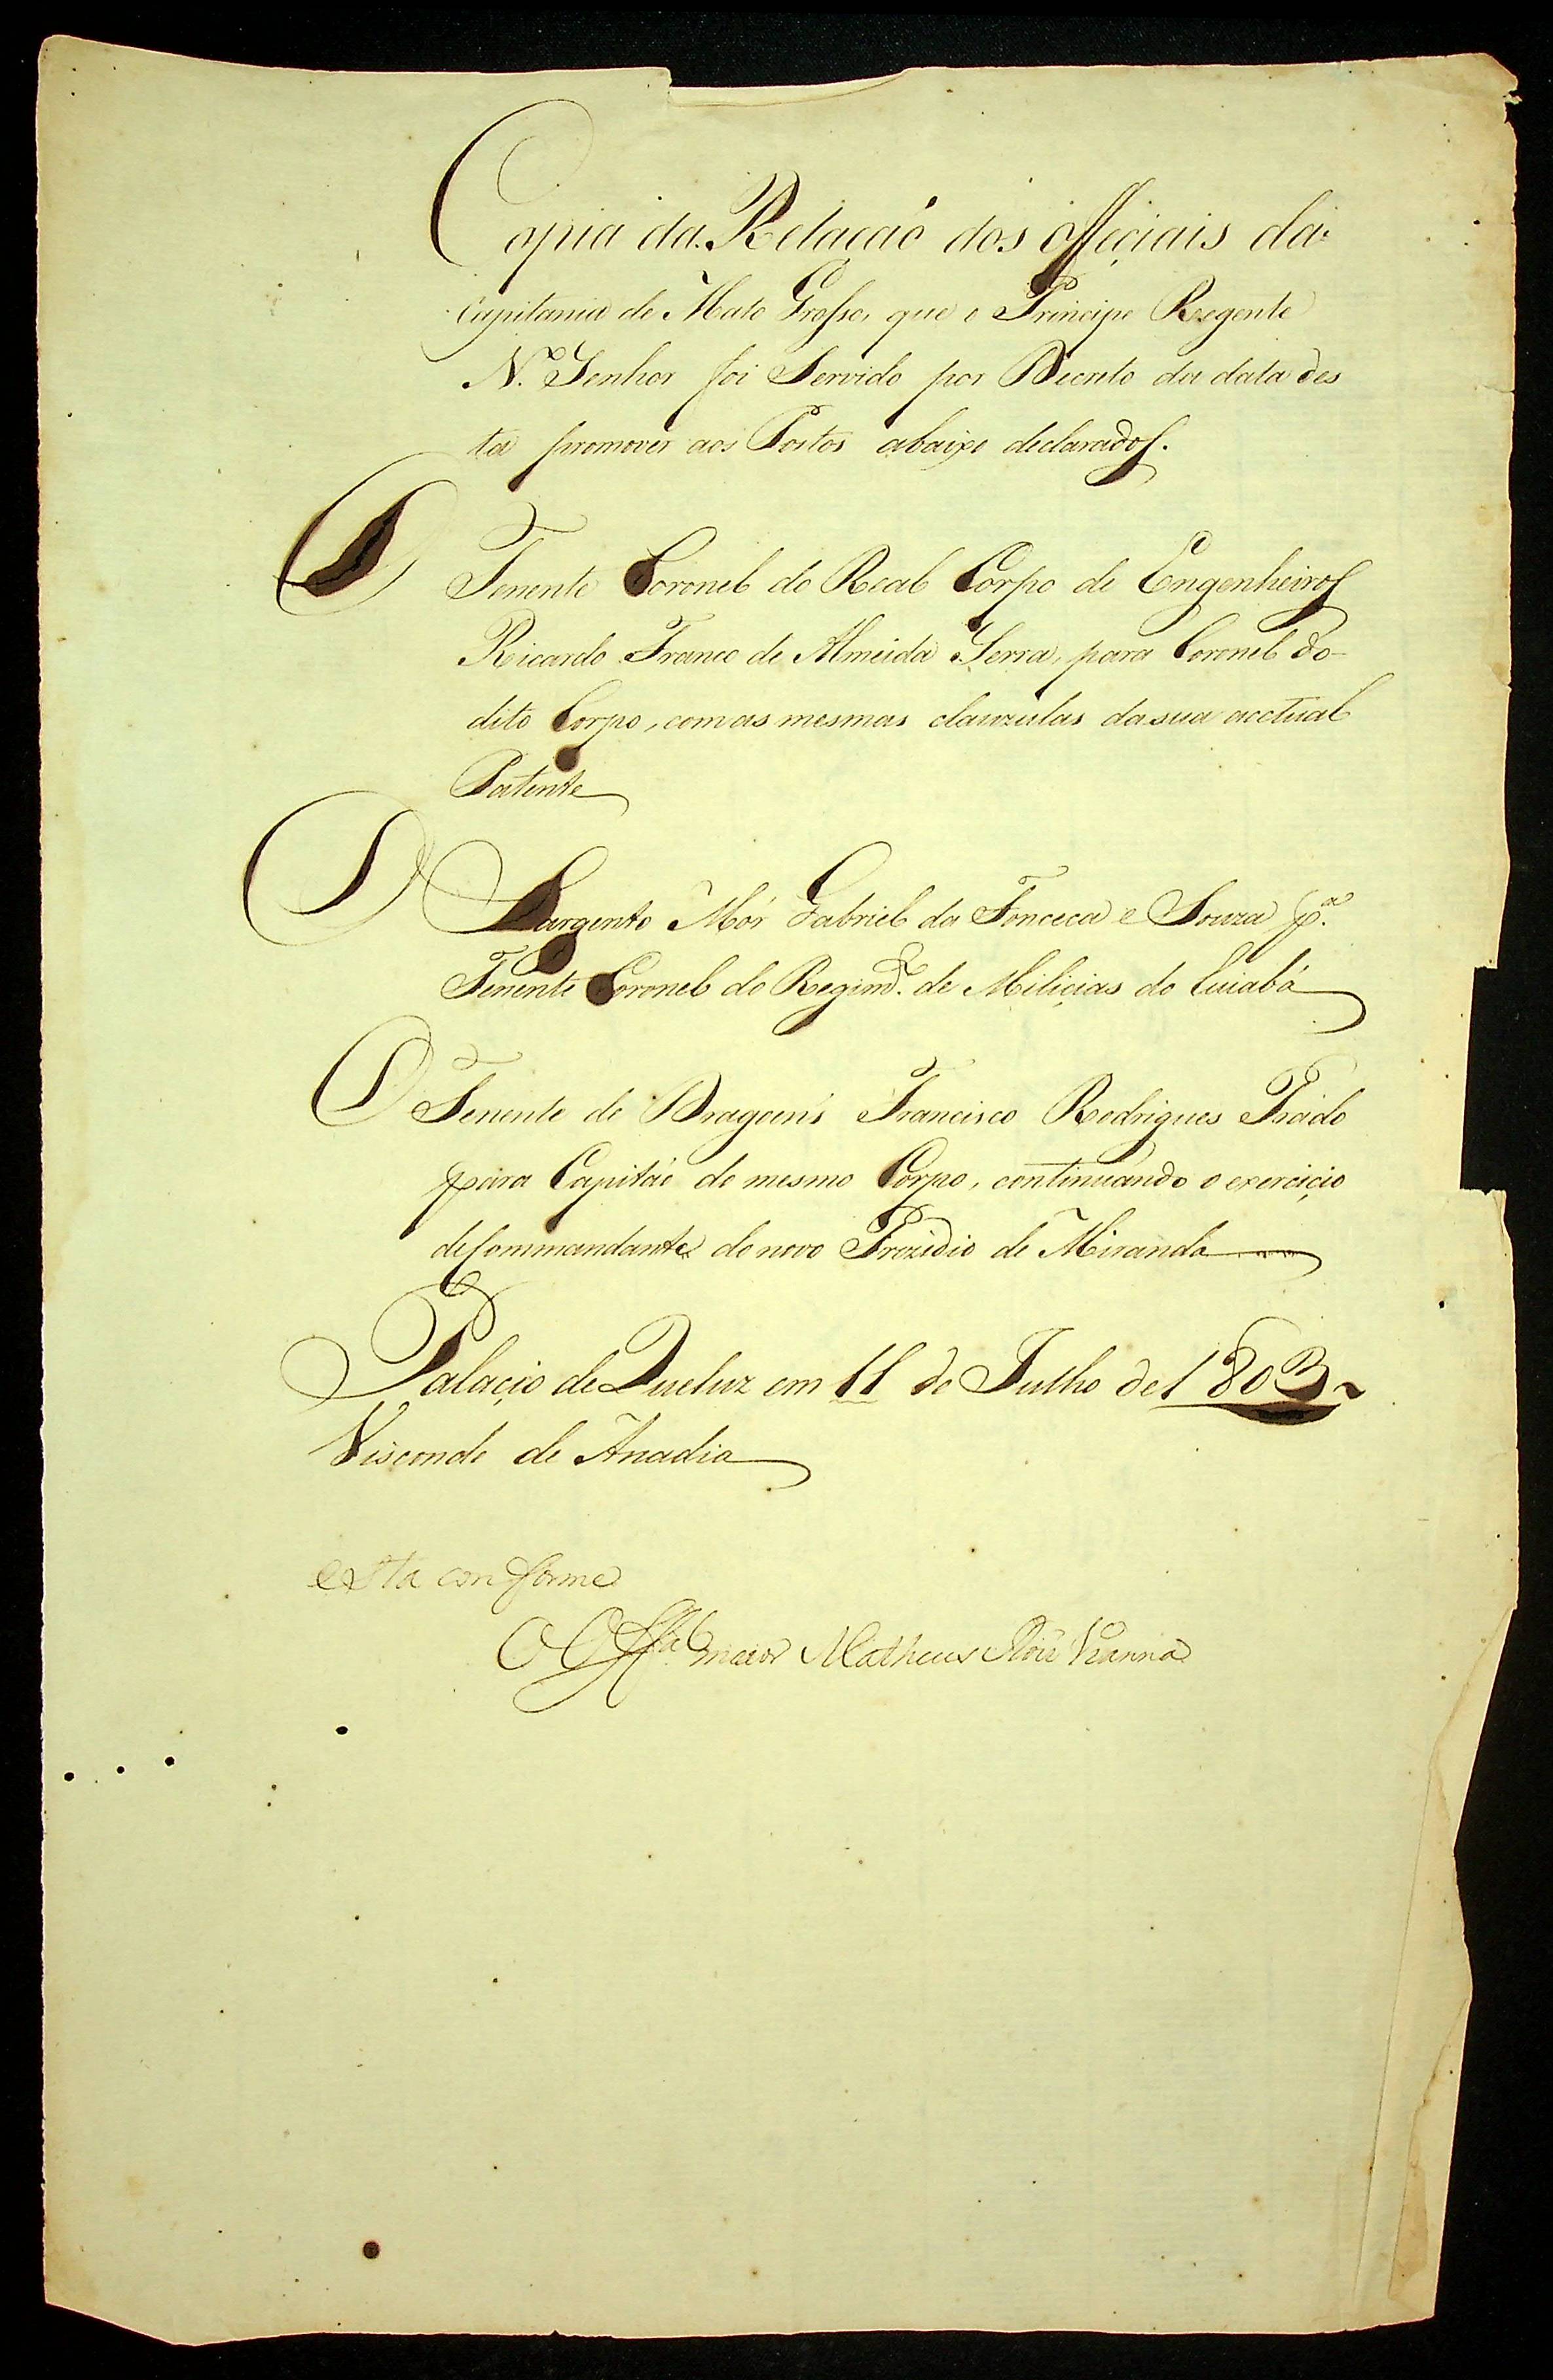 Copia da Relaçaõ dos officiais da
Capitania de Mato Grosso, que o Principe Regente
N.º Senhor foi Servido por Decreto da data des
ta promover aos Postos abaixo declarados.
O Tenente Coronel do Real Corpo de Engenheiros
Ricardo Franco de Almeida Serra, para Coronel do-
dito Corpo, com as mesmas clauzulas da sua acctual
Patente
O Sargento Mór Gabriel da Fonceca e Souza p.ª
Tenente Coronel do Regim.º de Milicias do Cuiabá
O Tenente de Dragoens Francisco Rodrigues Prado
para Capitaõ do mesmo Corpo, continuando o exercicio
de Commandante do novo Prezidio de Miranda
Palacio de Queluz em 11 de Julho de 1803
Visconde de Anadia
esta conforme
O Off.al maior Matheus Vianna